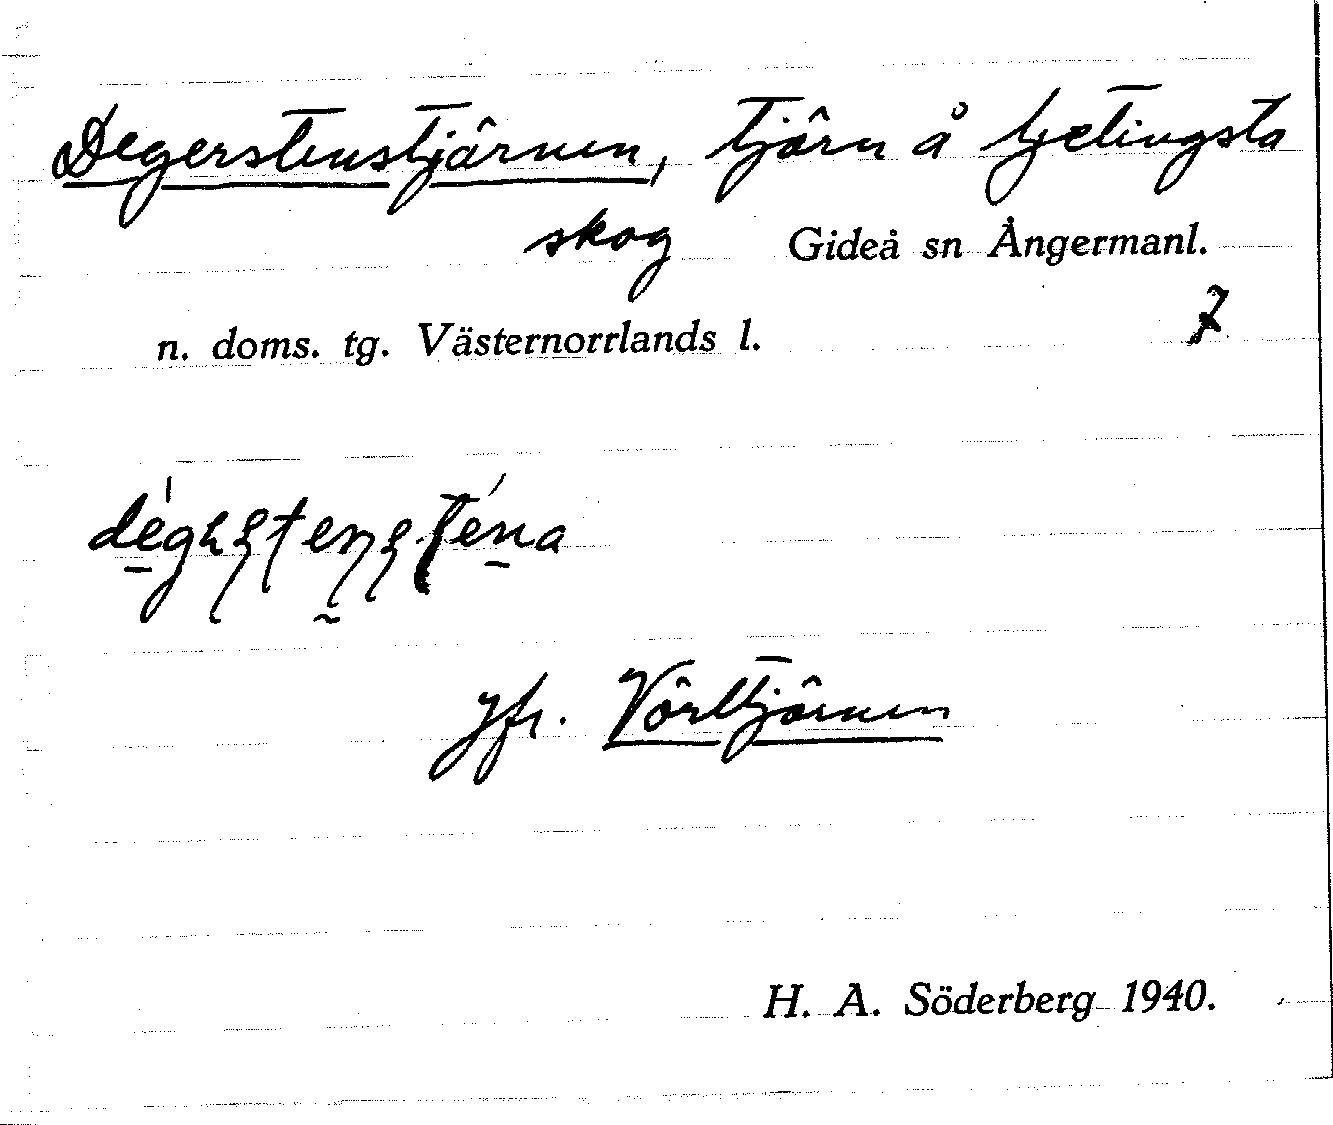 Degerstenstjärnen, tjärn å Gjetingsta
skog Gideå sn Ångermanl.
n. doms. tg. Västernorrlands l. 7
jfr. Vörttjärnen
H. A. Söderberg 1940.